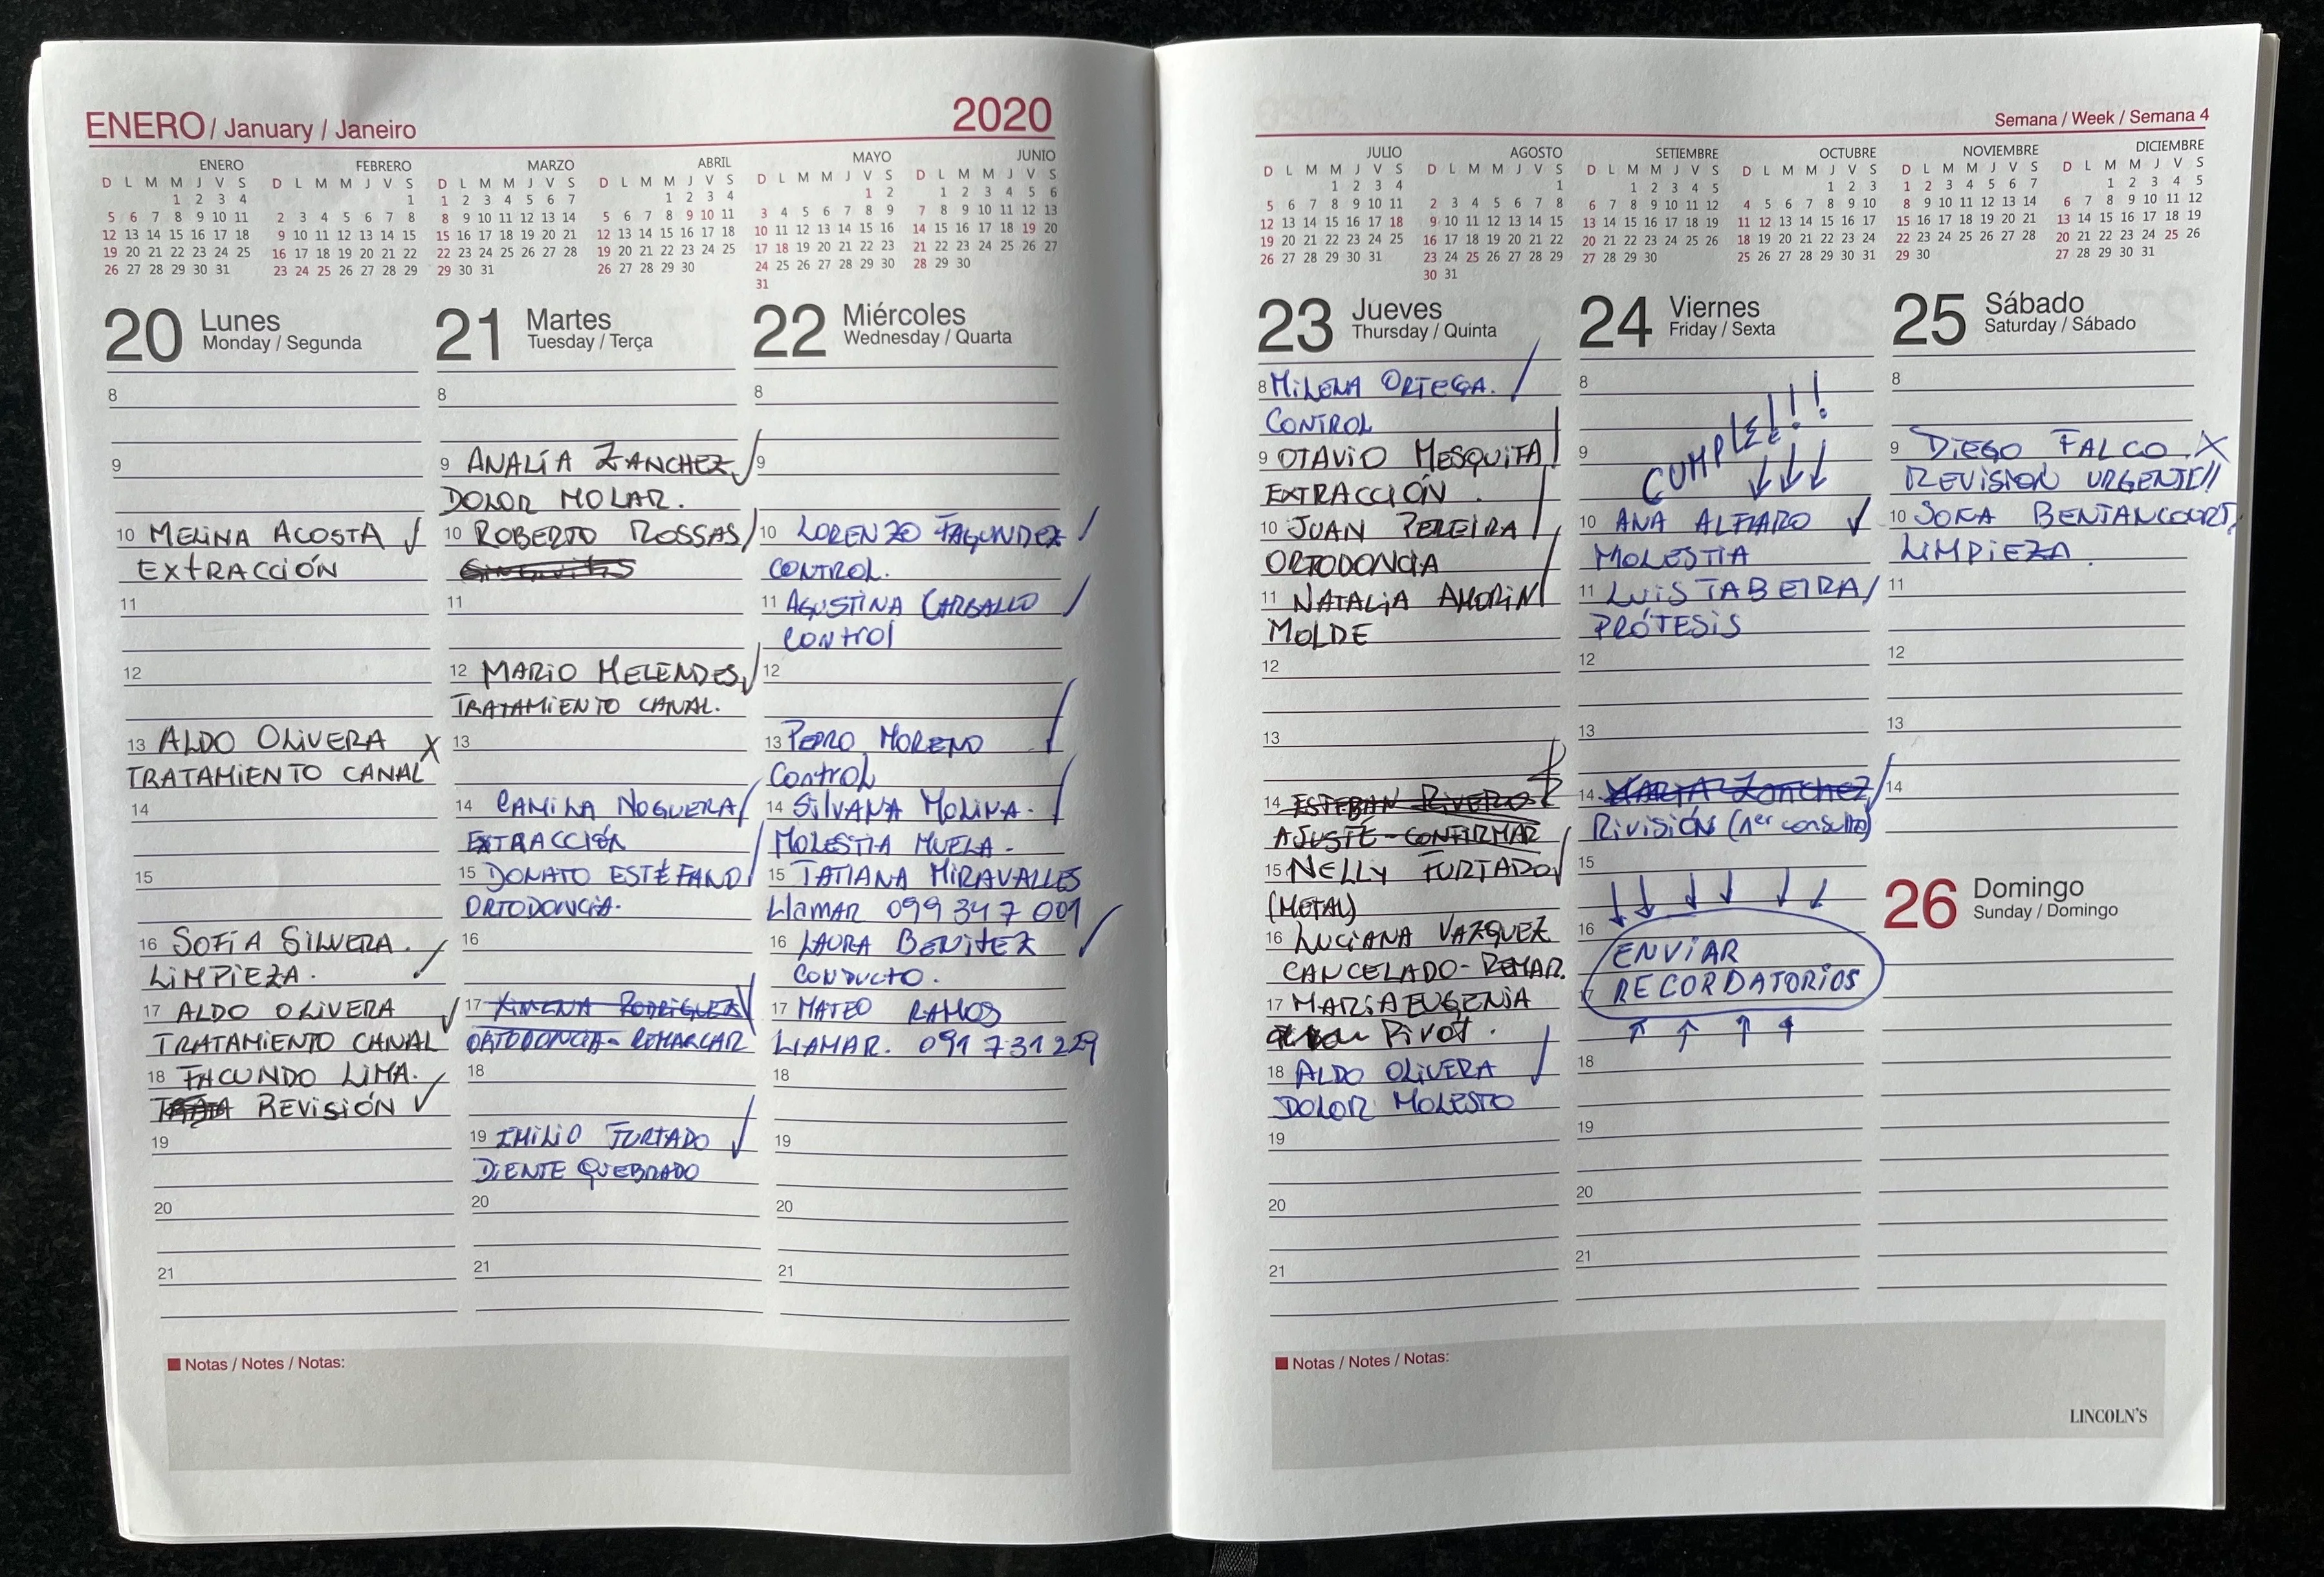 ENERO / January / Janeiro
2020
ENERO
D L M M J V S
1 2 3 4
5 6 7 8 9 10 11
12 13 14 15 16 17 18
19 20 21 22 23 24 25
26 27 28 29 30 31
FEBRERO
D L M M J V S
1
2 3 4 5 6 7 8
9 10 11 12 13 14 15
16 17 18 19 20 21 22
23 24 25 26 27 28 29
MARZO
D L M M J V S
1 2 3 4 5 6 7
8 9 10 11 12 13 14
15 16 17 18 19 20 21
22 23 24 25 26 27 28
29 30 31
ABRIL
D L M M J V S
1 2 3 4
5 6 7 8 9 10 11
12 13 14 15 16 17 18
19 20 21 22 23 24 25
26 27 28 29 30
MAYO
D L M M J V S
1 2
3 4 5 6 7 8 9
10 11 12 13 14 15 16
17 18 19 20 21 22 23
24 25 26 27 28 29 30
31
JUNIO
D L M M J V S
1 2 3 4 5 6
7 8 9 10 11 12 13
14 15 16 17 18 19 20
21 22 23 24 25 26 27
28 29 30
20 Lunes
Monday / Segunda
8
9
10 MELINA ACOSTA
EXTRACCIÓN
11
12
13 ALDO OLIVERA X
TRATAMIENTO CANAL
14
15
16 SOFÍA SILVERA.
LIMPIEZA.
17 ALDO OLIVERA
TRATAMIENTO CANAL
18 FACUNDO LIMA.
REVISIÓN
19
20
21
21 Martes
Tuesday / Terça
8
9 ANALÍA ZANCHEZ
DOLOR MOLAR.
10 ROBERTO ROSSAS
Gingivitis
11
12 MARIO MELENDES
TRATAMIENTO CANAL.
13
14 CAMILA NOGUERA
EXTRACCIÓN
15 DONATO ESTÉFANO
ORTODONCIA.
16
17 XIMENA RODRIGUEZ
ORTODONCIA - REMARCAR
18
19 EMILIO FURTADO
DIENTE QUEBRADO
20
21
22 Miércoles
Wednesday / Quarta
8
9
10 LORENZO FAGUNDEZ
CONTROL.
11 AGUSTINA CARBALLO
CONTROl
12
13 PEDRO MORENO
Control
14 SILVANA MOLINA.
MOLESTIA MUELA.
15 TATIANA MIRAVALLES
LlAMAR 099 347 001
16 LAURA BENITEZ
CONDUCTO.
17 MATEO RAMOS
LLAMAR. 091 731 229
18
19
20
21
Notas / Notes / Notas:
Semana / Week / Semana 4
JULIO
D L M M J V S
1 2 3 4
5 6 7 8 9 10 11
12 13 14 15 16 17 18
19 20 21 22 23 24 25
26 27 28 29 30 31
AGOSTO
D L M M J V S
1
2 3 4 5 6 7 8
9 10 11 12 13 14 15
16 17 18 19 20 21 22
23 24 25 26 27 28 29
30 31
SETIEMBRE
D L M M J V S
1 2 3 4 5
6 7 8 9 10 11 12
13 14 15 16 17 18 19
20 21 22 23 24 25 26
27 28 29 30
OCTUBRE
D L M M J V S
1 2 3
4 5 6 7 8 9 10
11 12 13 14 15 16 17
18 19 20 21 22 23 24
25 26 27 28 29 30 31
NOVIEMBRE
D L M M J V S
1 2 3 4 5 6 7
8 9 10 11 12 13 14
15 16 17 18 19 20 21
22 23 24 25 26 27 28
29 30
DICIEMBRE
D L M M J V S
1 2 3 4 5
6 7 8 9 10 11 12
13 14 15 16 17 18 19
20 21 22 23 24 25 26
27 28 29 30 31
23 Jueves
Thursday / Quinta
8 MILENA ORTEGA.
CONTROL
9 OTAVIO MESQUITA
EXTRACCIÓN.
10 JUAN PEREIRA
ORTODONCIA
11 NATALIA AMORIN
MOLDE
12
13
14 ESTEBAN RIVERO
AJUSTE - CONFIRMAR
15 NELLY FURTADO
(METAL)
16 LUCIANA VAZQUEZ
CANCELADO - REMAR.
17 MARIA EUGENIA
Pivot.
18 ALDO OLIVERA
DOLOR MOLESTO
19
20
21
24 Viernes
Friday / Sexta
8
9 CUMPLE!!!!
10 ANA ALFARO
MOLESTIA
11 LUIS TABEIRA
PRÓTESIS
12
13
14 MARÍA Zanchez
RIVISIÓN (1er consulta)
15
16 ENVIAR
17 RECORDATORIOS
18
19
20
21
25 Sábado
Saturday / Sábado
8
9 DIEGO FALCO. X
REVISION URGENTE!!
10 SOFIA BENTANCOURT.
LIMPIEZA.
11
12
13
14
26 Domingo
Sunday / Domingo
Notas / Notes / Notas:
LINCOLN'S